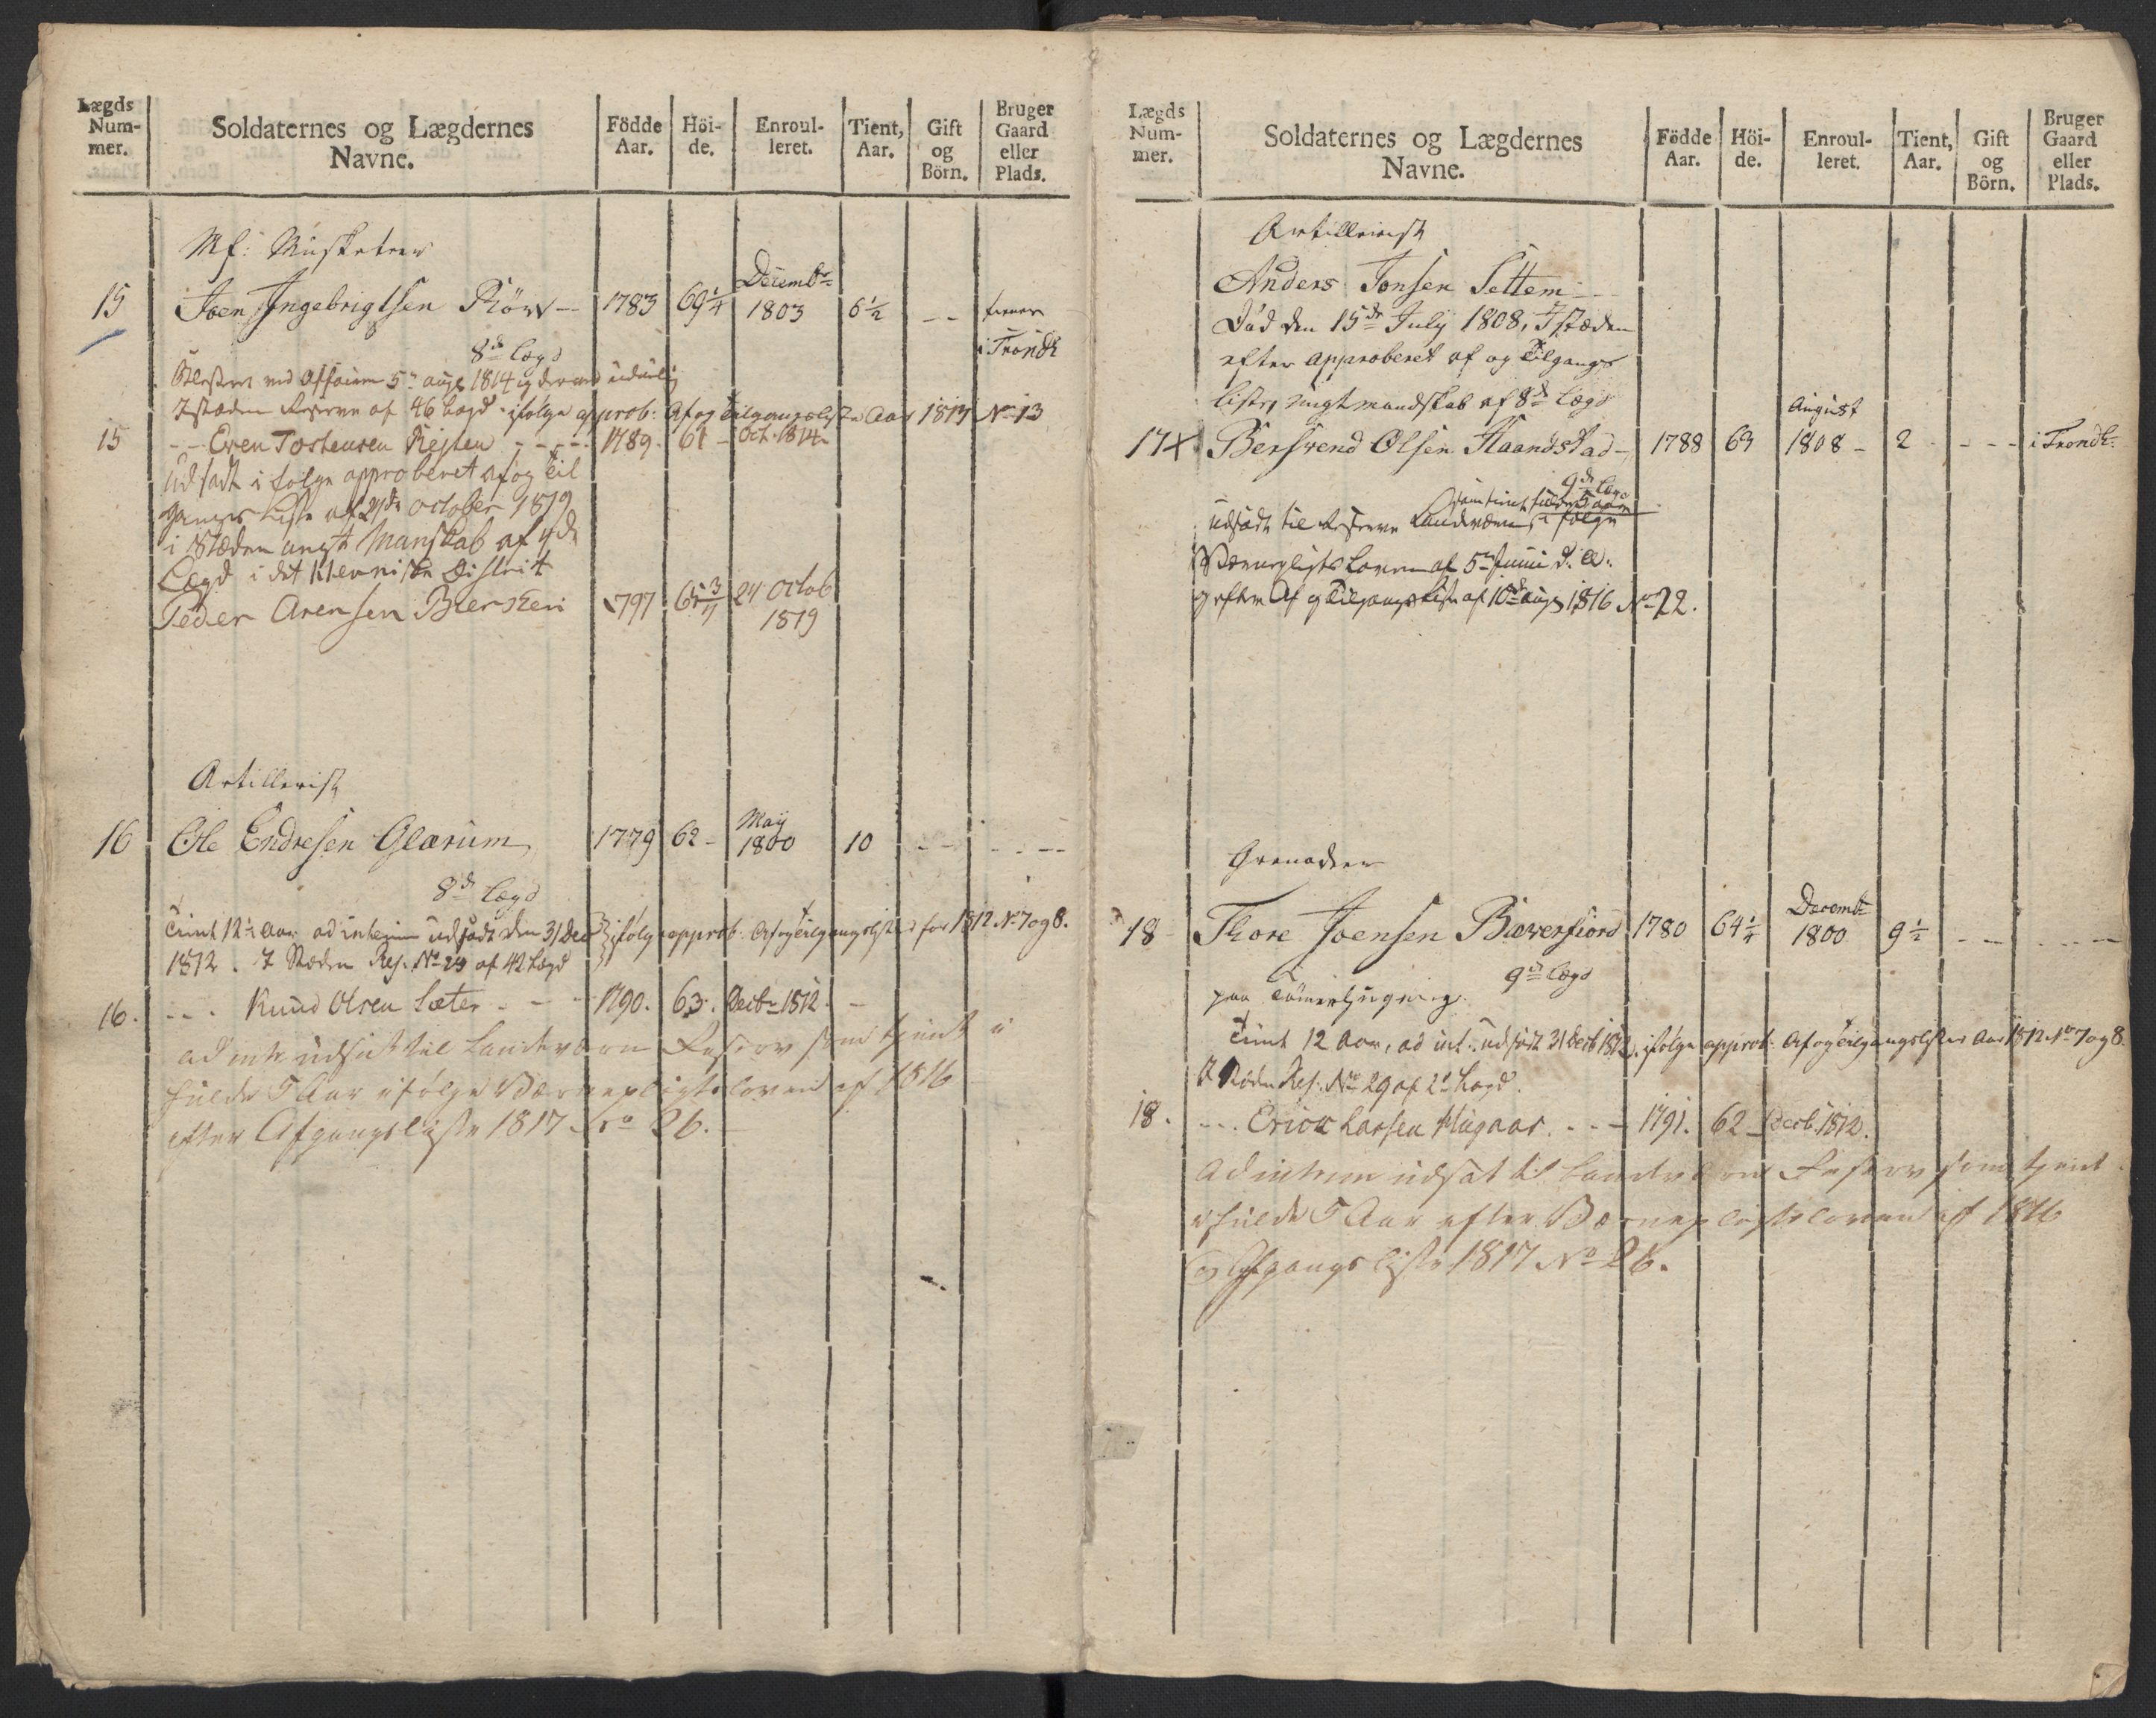 Lægds Num-mer. | Soldaternes og Lægdernes Navne. | Födde Aar. | Höi-de. | Enroul-leret. | Tient, Aar. | Gift og Börn. | Bruger Gaard eller Plads.
Mf: Musketeer
15 Joen Ingebrigtsen Röv — 1783 69 1/4 Decembr 1803 6 1/2 — — tiener i Trondh
8de Lægd
ved Affairen 5te aug 1814 og derved
Istæden Reserve af 46 Lægd ifölge approb: Af og tilgangsliste Aar 1814 No 13
15 — Even Tostensen Nesten — 1789. 61 — Oct. 1814
Udsadt i følge approberet af og til
gangs Liste af 24de October 1819
i Stæden ungt Manskab af 9de
Lægd i det Distrit
Peder Arensen 1797 24 Octob 1819
Artillerist
16 Ole Endresen Glærum 1779 62 — May 1800 10 — — — —
8de Lægd
Tient 12 1/2 Aar ad interim udsadt den 31 Dec ifölge approb. Af og tilgangslister for 1812. No 7 og 8.
1812. I Stæden Res. No 29 af 42 Lægd
16. — Knud Olsen Sæter — 1790. 63. Decbr 1812. —
ad intr udsat til Landeværn Reserv som tjent i
fulde 5 Aar ifølge Værnepligtsloven af 1816
efter Afgangsliste 1817 No 26.
Lægds Num-mer. | Soldaternes og Lægdernes Navne. | Födde Aar. | Höi-de. | Enroul-leret. | Tient, Aar. | Gift og Börn. | Bruger Gaard eller Plads.
Artillerist
Anders Jonsen Settem —
Död den 15de July 1808, I stæden
efter approberet af og Tilgangs
Liste, ungt mandskab af 8de Lægd
17 + Bersvend Olsen Haandstad — 1788 69 August 1808 — 2 — — — i Trondh:
9de Lægd
som tient fulde 5 aar
udsadt til Reserve Landværn, i følge
Værnepligts Loven af 5te Junii d. A.
og efter Af og Tilgangs Liste af 10de aug 1816 No 22.
Grenadeer
18 Thore Joensen Bæverfiord 1780 64 1/4 Decembr 1800 9 1/2 — — — —
9de Lægd
paa
Tient 12 Aar, ad int. udsadt 31 Decb 1812. ifölge approb: Af og tilgangslister Aar 1812 No 7 og 8.
I Stæden Res. No 29 af 2d Lægd.
18. — Erick Larsen Hugaas. — 1791. 62 — Decb. 1812.
Ad interim udsat til Landeværn Reserv som tjent
i fulde 5 Aar efter Værnepligtsloven af 1816
og Afgangsliste 1817 No 26.